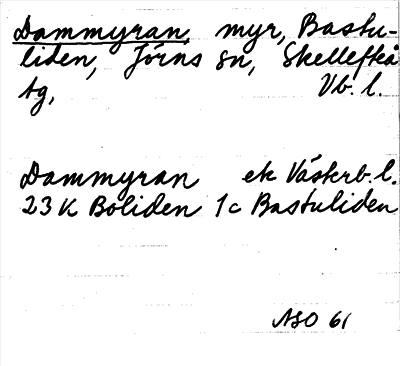 Dammyran, myr, Bastu-
liden, Jörns sn, Skellefteå
tg, Vb. l.
Dammyran ek Västerb. l.
23 K Boliden 1c Bastuliden
ASO 61